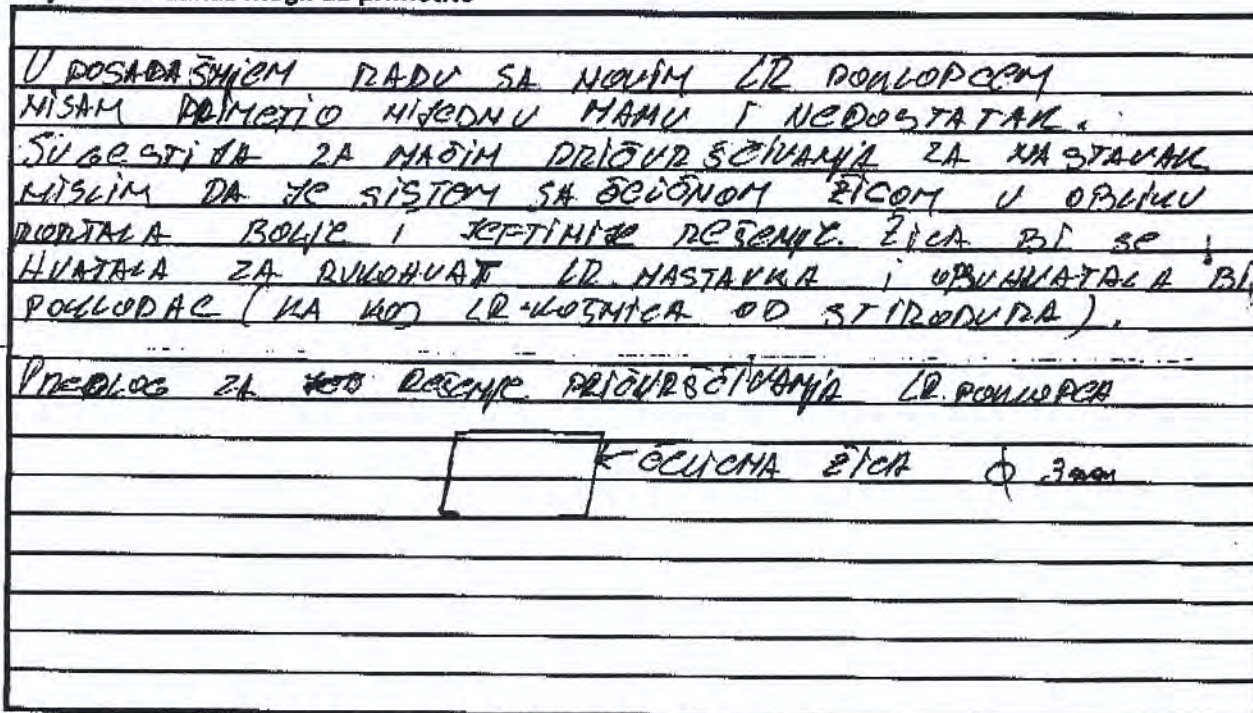 U DOSADAŠNJEM RADU SA NOVIM LR POKLOPCEM
NISAM PRIMETIO NIJEDNU MANU I NEDOSTATAK.
SUGESTIJA ZA NAČIN PRIČVRŠĆIVANJA ZA NASTAVAK
MISLIM DA JE SISTEM SA ČELIČNOM ŽICOM U OBLIKU
PORTALA BOLJE I JEFTINIJE REŠENJE. ŽICA BI SE
HVATALA ZA RUKOHVAT LR. NASTAVKA I OBUHVATALA BI
POKLOPAC (KA KOD LR-KOŠNICA OD STIRODURA).
PREDLOG ZA REŠENJE PRIČVRŠĆIVANJA LR. POKLOPCA
ČELICNA ŽICA ϕ 3mm